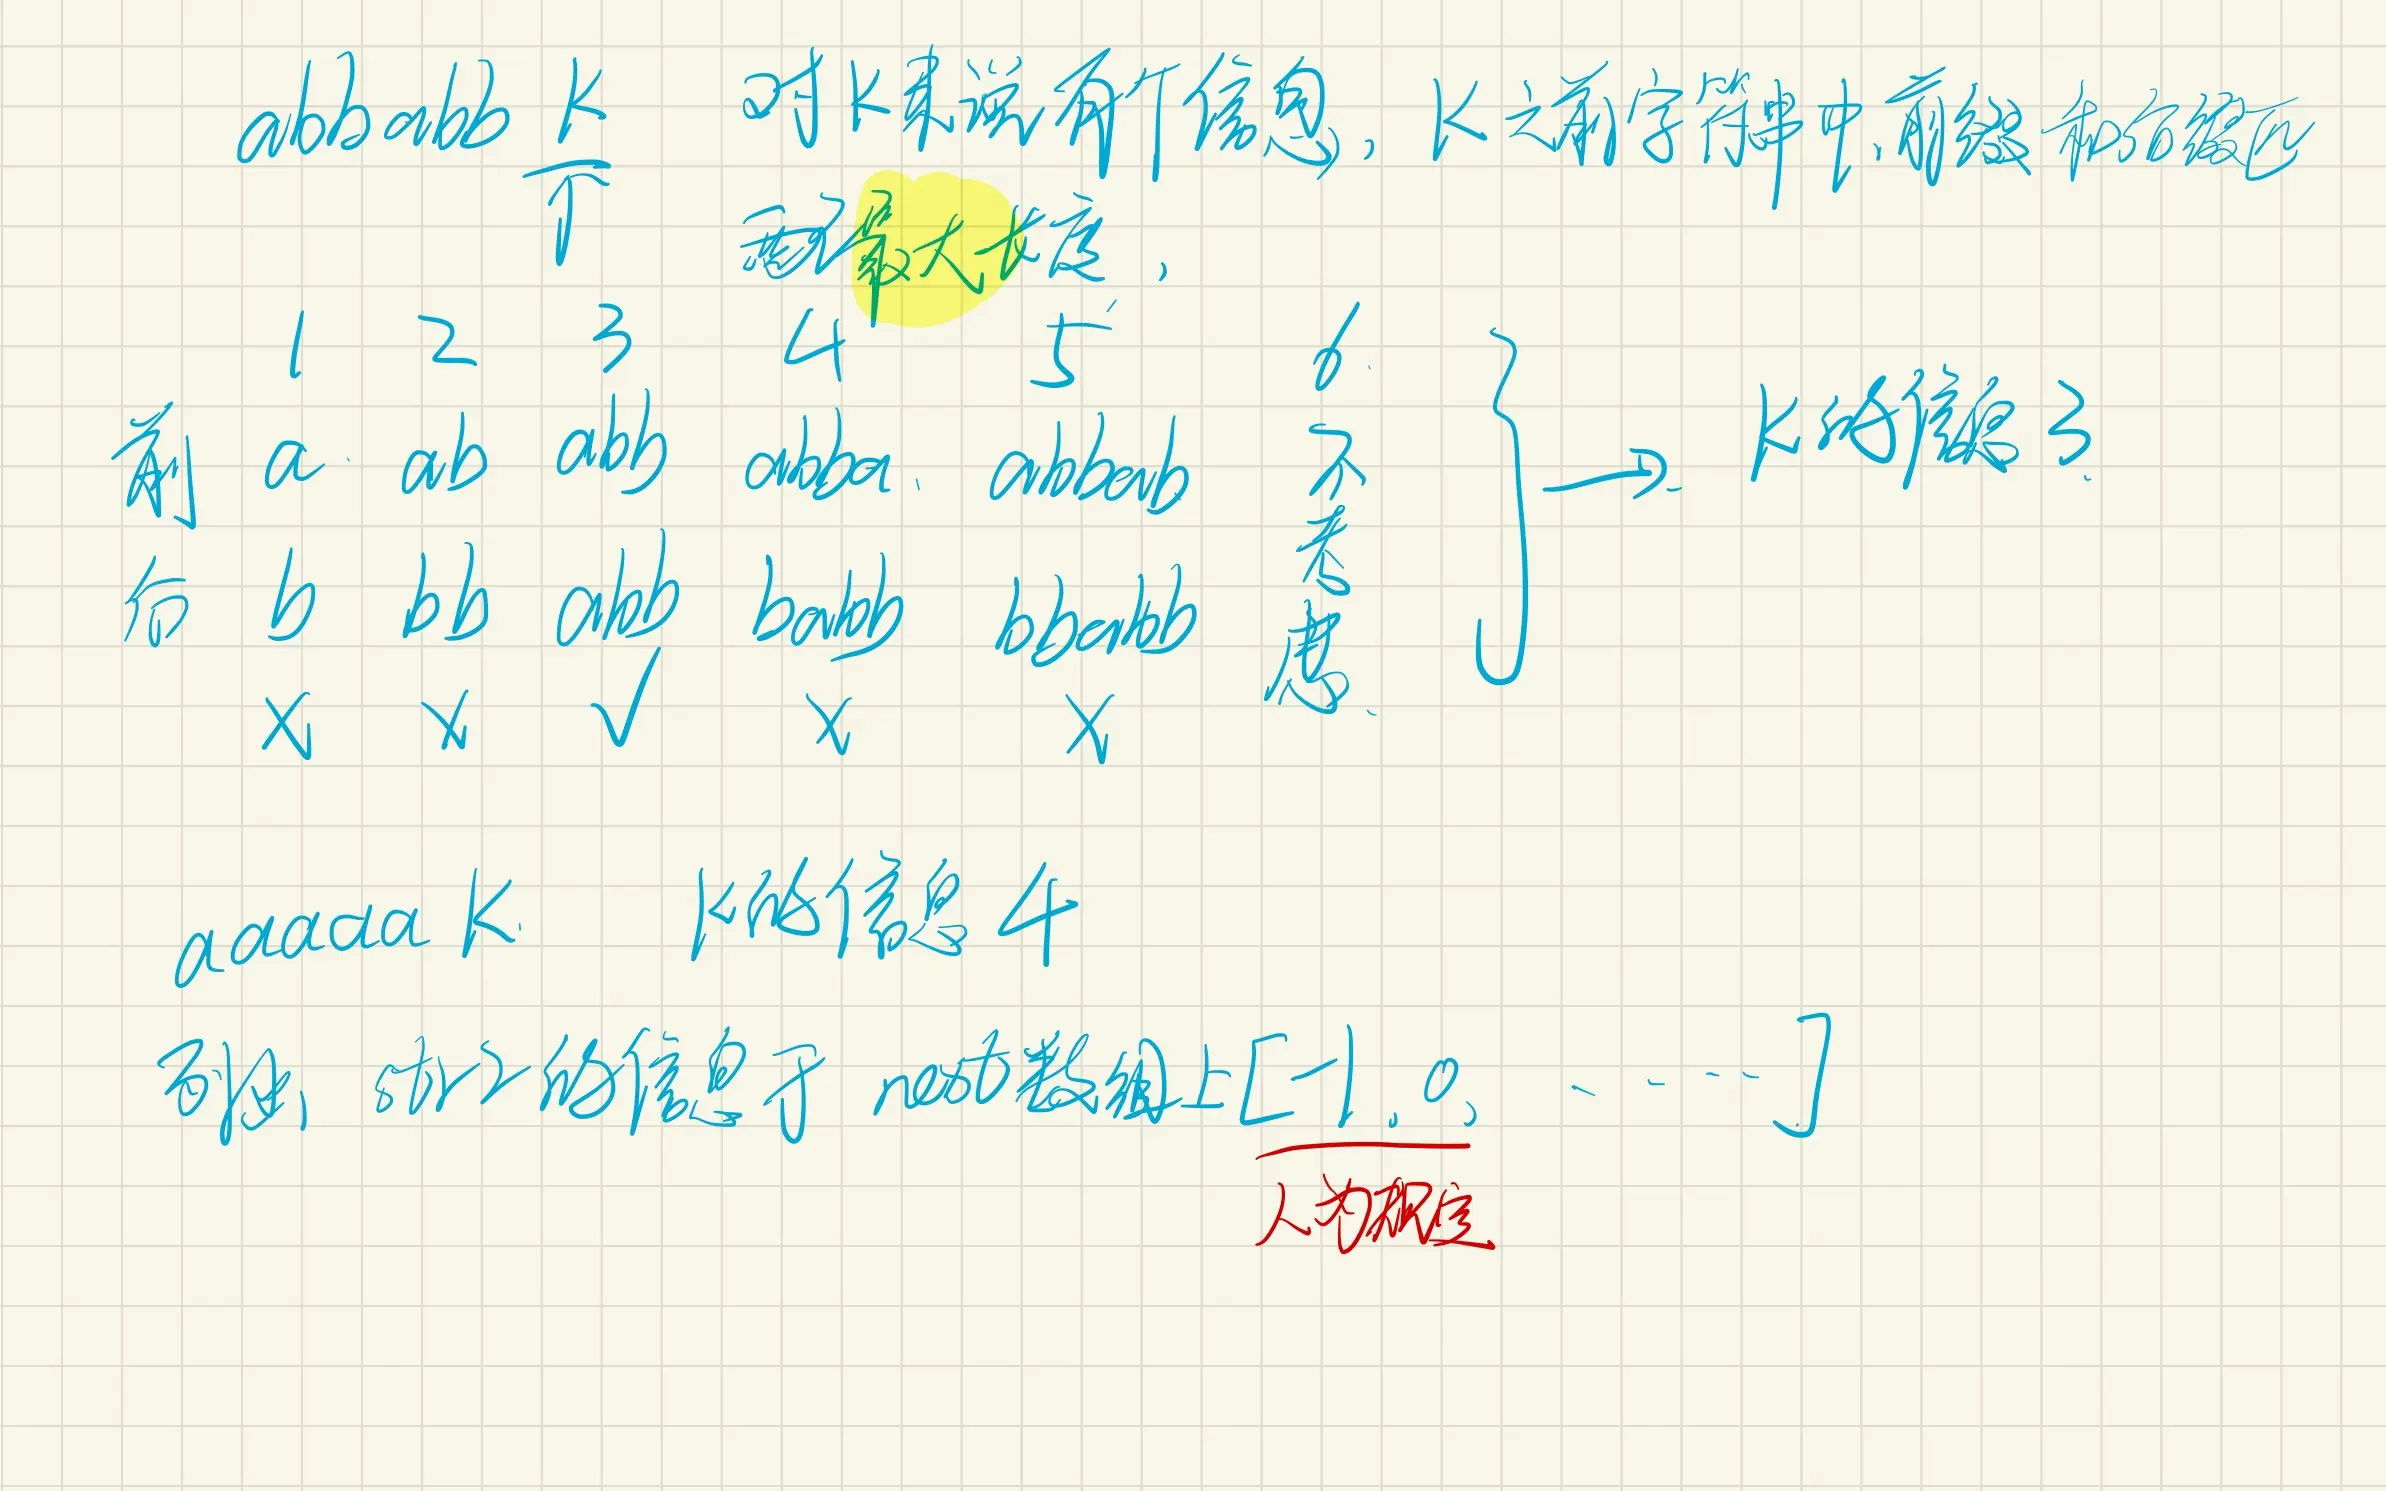 abbabb K 对K来说有个信息, K之前字符串中, 前缀和后缀匹
配最大长度,
1 2 3 4 5 6
前 a ab abb abba abbab 不考虑
后 b bb abb babb bbabb
× × √ × ×
→ K的信息3
aaaaa K K的信息4
str2的信息于 next数组上[-1, 0, ----]
人为规定